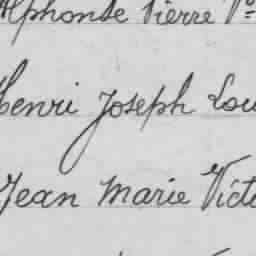 Alphonse Pierre Vor
Henri Joseph Lou
Jean Marie Victo